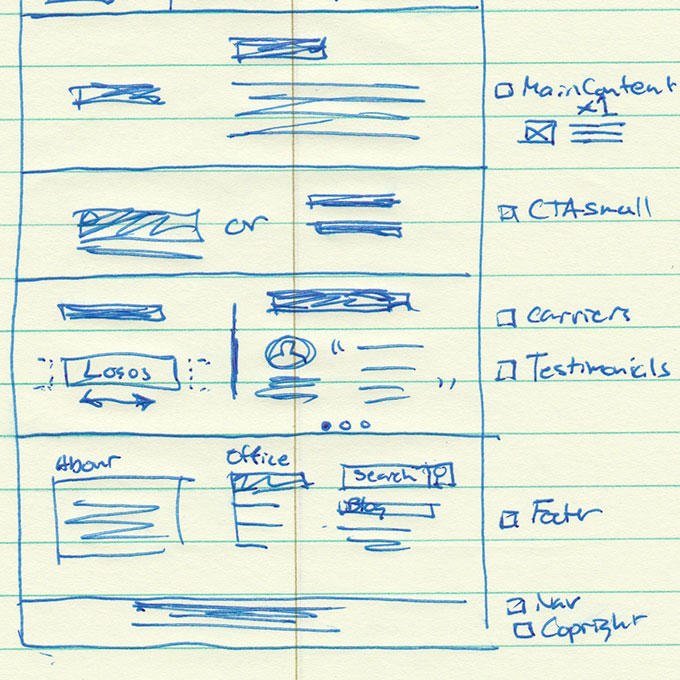 MainContent
x1
CTA small
or
Carriers
Logos
“
”
Testimonials
About
Office
Search
Blog
Footer
Nav
Copright